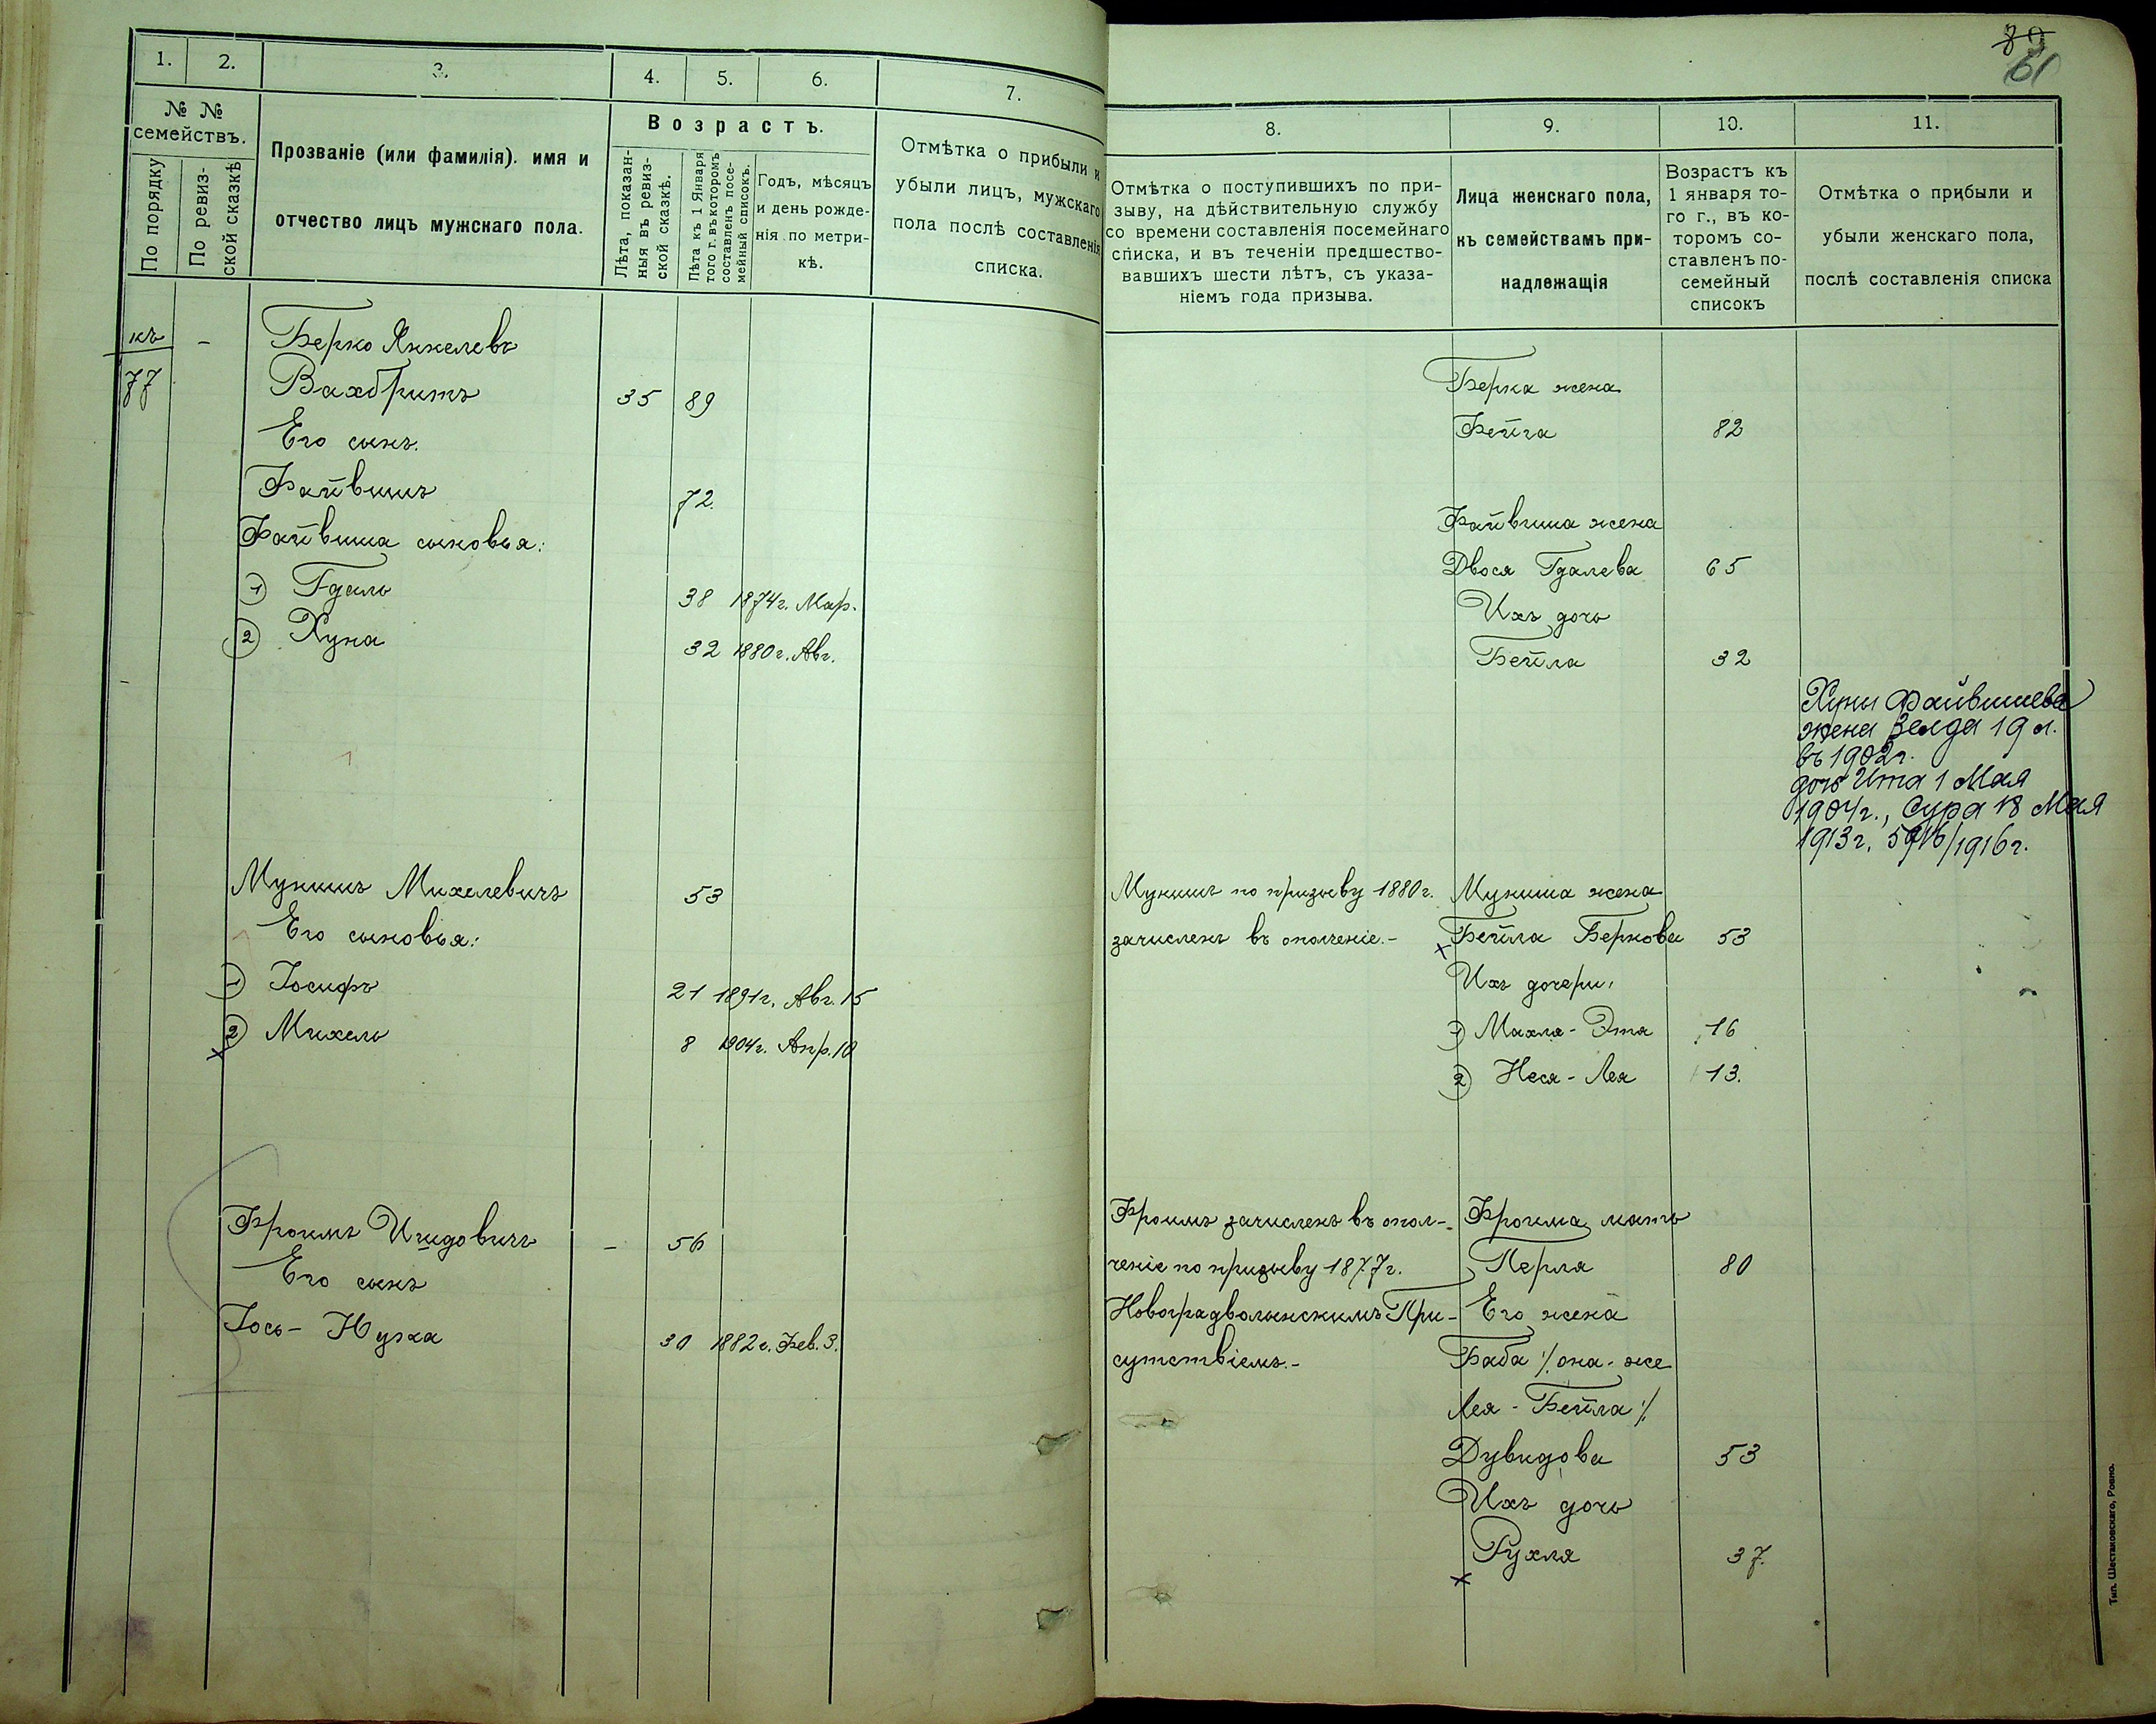 1.
2.
3.
4.
5.
6.
7.
№ №
семействъ.
По порядку
По ревиз-
ской сказкѣ
Прозваніе (или фамилія). имя и
отчество лицъ мужскаго пола.
Возрастъ.
Лѣта, показан-
ныя въ ревиз-
ской сказкѣ.
Лѣта къ 1 Января
того г. въ которомъ
составленъ посе-
мейный списокъ.
Годъ, мѣсяцъ
и день рожде-
нія по метри-
кѣ.
Отмѣтка о прибыли и
убыли лицъ, мужскаго
пола послѣ составленія
списка.
къ
77
-
Берко Янкелевъ
Вахбритъ 35 89
Его сынъ.
Файвишъ 72.
Файвиша сыновья:
1) Гдаль 38 1874г. Мар.
2) Хуна 32 1880г. Авг.
Мунишъ Михелевичъ 53
Его сыновья:
1) Іосифъ 21 1891г. Авг. 15
2) Михель 8 1904г. Апр. 10
Фроимъ Ицидовичъ - 56
Его сынъ
Іось - Нузха 30 1882г. Фев. 3.
80
61
8.
9.
10.
11.
Отмѣтка о поступившихъ по при-
зыву, на дѣйствительную службу
со времени составленія посемейнаго
списка, и въ теченіи предшество-
вавшихъ шести лѣтъ, съ указа-
ніемъ года призыва.
Лица женскаго пола,
къ семействамъ при-
надлежащія
Возрастъ къ
1 января то-
го г., въ ко-
торомъ со-
ставленъ по-
семейный
списокъ
Отмѣтка о прибыли и
убыли женскаго пола,
послѣ составленія списка
Берка жена
Фейга 82
Файвиша жена
Двося Гдалева 65
Ихъ дочь
Бейла 32
Хуны Файвишева
жена Зелда 19 л.
въ 1902г.
дочь Ита 1 Мая
1904г., Сура 18 Мая
1913г.
/1916г.
Мунишъ по призыву 1880г.
зачисленъ въ ополченіе.-
Муниша жена
Бейла Беркова 53
Ихъ дочери:
1) Махля - Эта 16
2) Неся - Лея 13.
Фроимъ зачисленъ въ опол-
ченіе по призыву 1877г.
Новоградволынскимъ При-
сутствіемъ.-
Фроима мать
Перля 80
Его жена
Баба /. она-же
Лея - Бейла ./
Дувидова 53
Ихъ дочь
Рухля 37.
Тип. Шестаковскаго, Ровно.